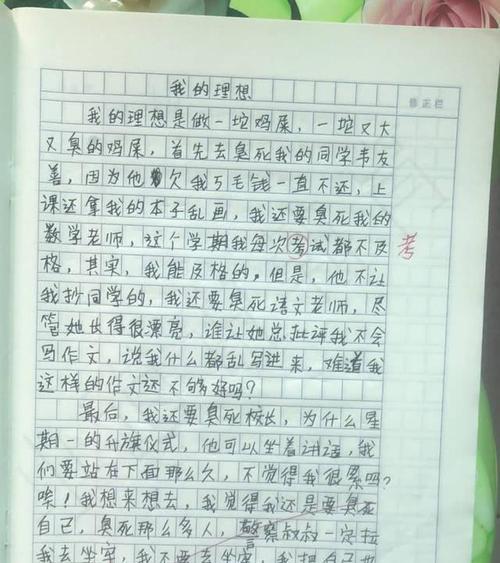 我的理想
修正栏
我的理想是做一坨鸡屎，一坨又大
又臭的鸡屎，首先去臭死我的同学韦友
善，因为他欠我5毛钱一直不还，上
课还拿我的本子乱画，我还要臭死我的
数学老师，这个学期我每次考试都不及
考
格，其实，我能及格的，但是，他不让
我抄同学的，我还要臭死语文老师，尽
管她长得很漂亮，谁让她总批评我不会
写作文，说我什么都乱写进来，难道我
这样的作文还不够好吗？
最后，我还要臭死校长，为什么星
期一的升旗仪式，他可以坐着讲话，我
们要站在下面那么久，不觉得我很累吗？
唉！我想来想去，我觉得我还是要臭死
自己，臭死那么多人，警察叔叔一定拉
我去坐牢，我不要去坐牢，我把自己